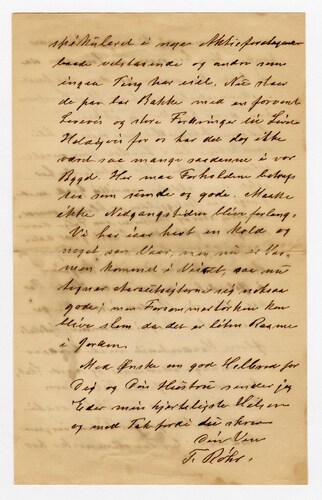 spekuleret i nye Aktieforetagener
baade velstaaende og andre som
ingen Ting har eiet. Nu staar
de par bar Bakke med en forvent
Levevis og store Fordringer til Livet
Heldigvis for os har det dog ikke
været saa mange saadenne i vor
Bygd. Her maa Forholdene betegnes
som sunde og gode. Maatte
ikke Nedgangstiden blive forlang.
Vi har iaar havt en kold og
noget sen Vaar, men nu er Var-
men kommet i Veiret, saa nu
tegner Markarbeiderne sig nokså
gode; men Forsommertørken kan
blive slem da det er liten Raame
i Jorden.
Med Ønske om god Helbred for
Dig og Din Hustru sender jeg
Eder min hjerteligste Hilsen
og med Tak fordi du skrev
Din Ven
T. Røhr.